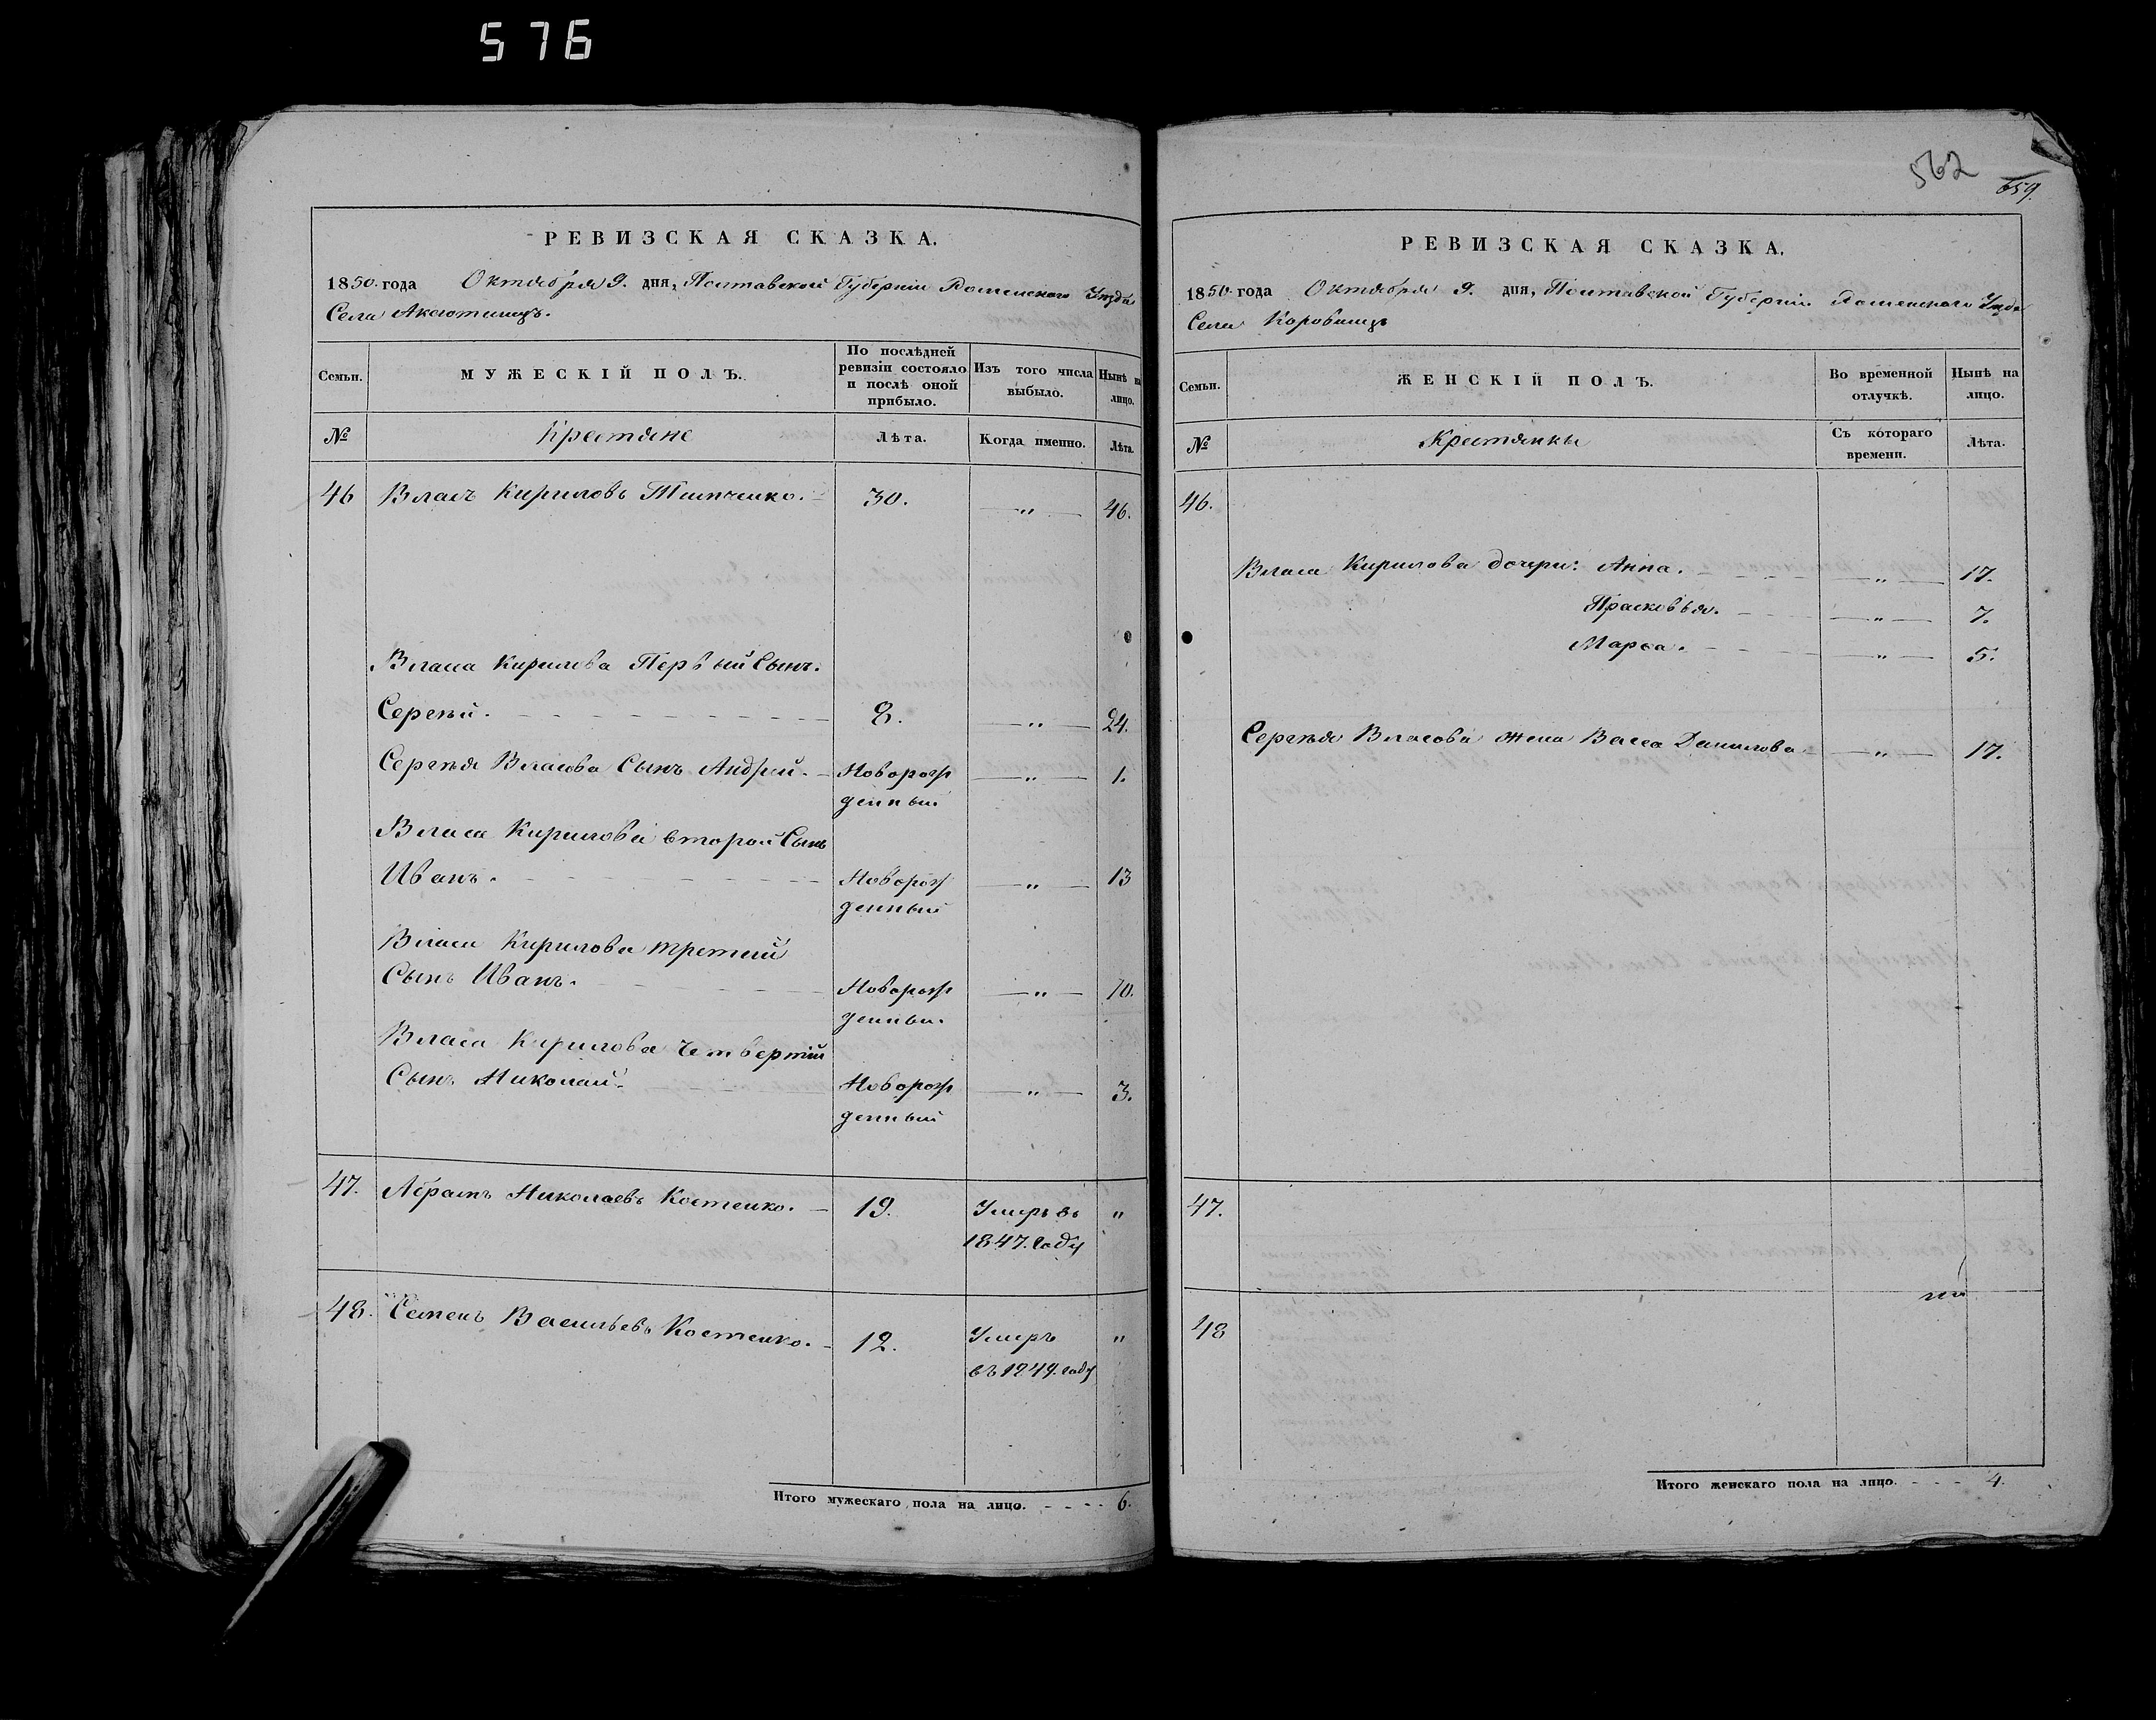 576
562
659.
РЕВИЗСКАЯ СКАЗКА.
1850 года Октября 9. дня, Полтавской Губерніи Роменскаго Уѣзда
Села Аксютинцъ.
Семьи.
МУЖЕСКІЙ ПОЛЪ.
По послѣдней
ревизіи состояло
и послѣ оной
прибыло.
Изъ того числа
выбыло.
Нынѣ на
лицо.
№
Крестяне
Лѣта.
Когда именно.
Лѣта.
46 Власъ Кириловъ 30. „ 46.
Власа Кирилова Первый Сынъ.
Сергѣй. 8. „ 24.
Сергѣя Власова Сынъ Андрей. Новорож „ 1.
денный
Власа Кирилова второй Сынъ
Иванъ. Новорож „ 13
денный
Власа Кирилова третий
Сынъ Иванъ. Новорож „ 10.
денны.
Власа Кирилова Четвертій
Сынъ Николай. Новорож „ 3.
денный
47. Абрамъ Николаевъ Костенко. 19. Умеръ въ „
1847. году
48. Семенъ Васильевъ Костенко. 12. Умеръ „
въ 1849. году
Итого мужескаго пола на лицо. 6.
РЕВИЗСКАЯ СКАЗКА.
1850 года Октября 9. дня, Полтавской Губерніи Роменскаго Уѣзда
Села Коровинцъ
Семьи.
ЖЕНСКІЙ ПОЛЪ.
Во временной
отлучкѣ.
Нынѣ на
лицо.
№
Крестянки
Съ котораго
времени.
Лѣта.
46.
Власа Кирилова дочери: Анна. „ 17.
Прасковья. „ 7.
Марѳа. „ 5.
Сергѣя Власова жена Васса Данилова „ 17.
47.
48
Итого женскаго пола на лицо. 4.